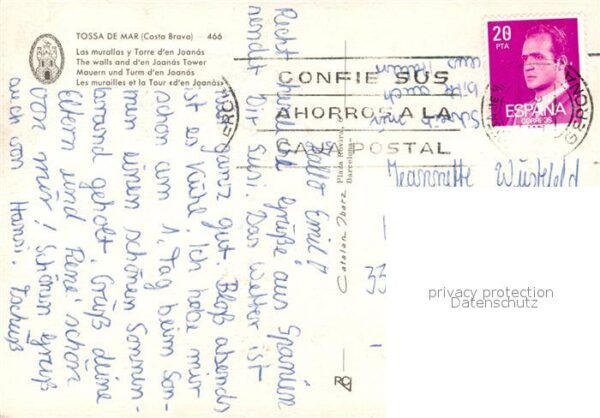 TOSSA DE MAR (Costa Brava) - 466
Las murallas y Torre d'en Joanás
The walls and d'en Joanás Tower
Mauern und Turm d'en Joanás
Les murailles et la Tour d'en Joanás
20
PTA
ESPAÑA
CORREOS
GERONA
CONFIE SUS
AHORROS A LA
CAJA POSTAL
Jeannette
33
Hallo Emil!
Recht herzliche Grüße aus Spanien
sendet Dir Susi. Das Wetter ist
ganz gut. Bloß abends
ist es kühl. Ich habe mir
schon am 1. Tag beim Son-
nen einen schönen Sonnen-
brand geholt. Grüß deine
Eltern und René schön
von mir! Schönen Gruß
auch von Mami. Tschüß
Schreib mir
bitte auch
Catalan Ibarz
Barcelona
privacy protection
Datenschutz